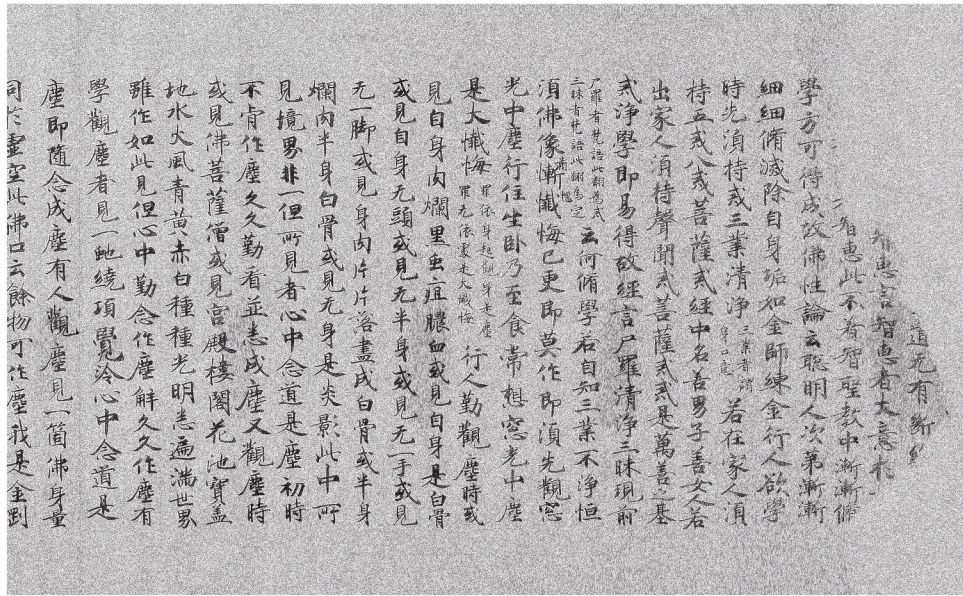 道无有斷絕
智恵言智恵者大意
智恵此不着智聖教中漸漸脩
學方可得成故佛性論云聡明人次弟漸漸
細細脩滅除自身垢如金師練金行人欲學
時先湏持戒三業清浄三業者謂身口意若在家人湏
持五戒八戒菩薩戒經中名善男子善女人若
出家人湏持聲聞戒菩薩戒戒是萬善之基
戒浄學即易得故經言尸羅清浄三昧現前
尸羅者梵語此翻爲戒三昧者梵語此翻爲定云何脩學若自知三業不浄恒
湏佛像慚愧懺悔已更即莫作即湏先觀窓
光中塵行住坐卧乃至食常想窓光中塵
是大懺悔罪依身起觀身是塵罪无依處是大懺悔行人勤觀塵時或
見自身肉爛里虫疽膿血或見自身是白骨
或見自身无頭或見无半身或見无一手或見
无一脚或見身肉片片落盡成白骨或半身
爛肉半身白骨或見无身是炎影此中所
見境界非一但所見者心中念道是塵初時
不肯作塵久久勤看並悉成塵又觀塵時
或見佛菩薩僧或見宫殿樓閣花池寳盖
地水火風青黄赤白種種光明悉遍滿世界
雖作如此見但心中勤念作塵解久久作塵有
學觀塵者見一虵繞項覺冷心中念道是
塵即随念成塵有人觀塵見一箇佛身量
同於虚空此佛口云餘物可作塵我是金剛